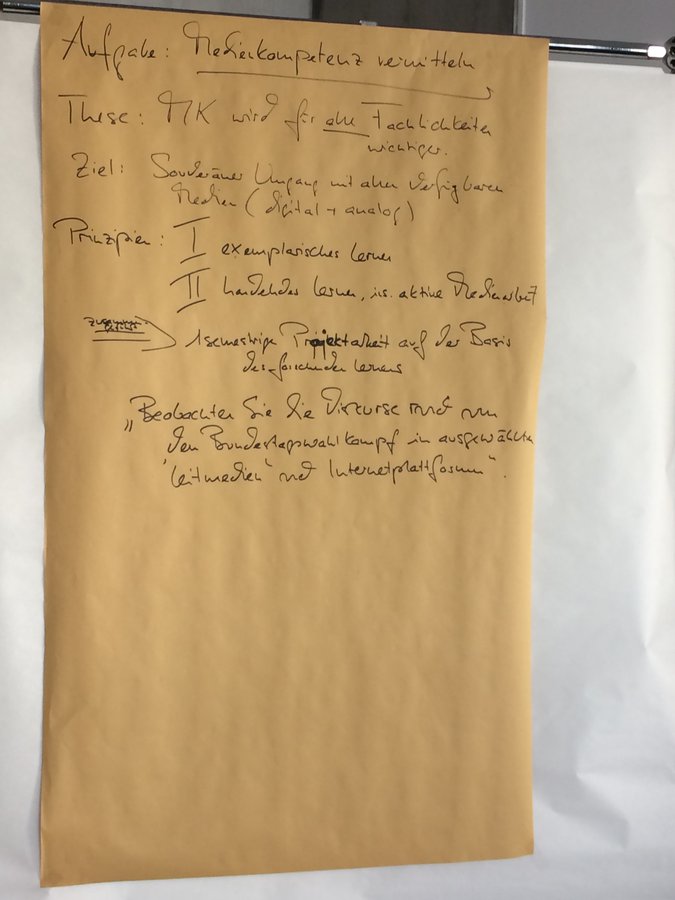 Aufgabe: Medienkompetenz vermitteln
These: MK wird für alle Fachlichkeiten
wichtiger.
Ziel: Souveräner Umgang mit allen verfügbaren
Medien (digital + analog)
Prinzipien: I exemplarisches lernen
II handelndes lernen, i.s. aktive Medienarbeit
1semestrige Projektarbeit auf der Basis
des forschenden lernens
„Beobachten Sie die Diskurse rund um
den Bundestagswahlkampf in ausgewählten
'Leitmedien" und Internetplattformen".